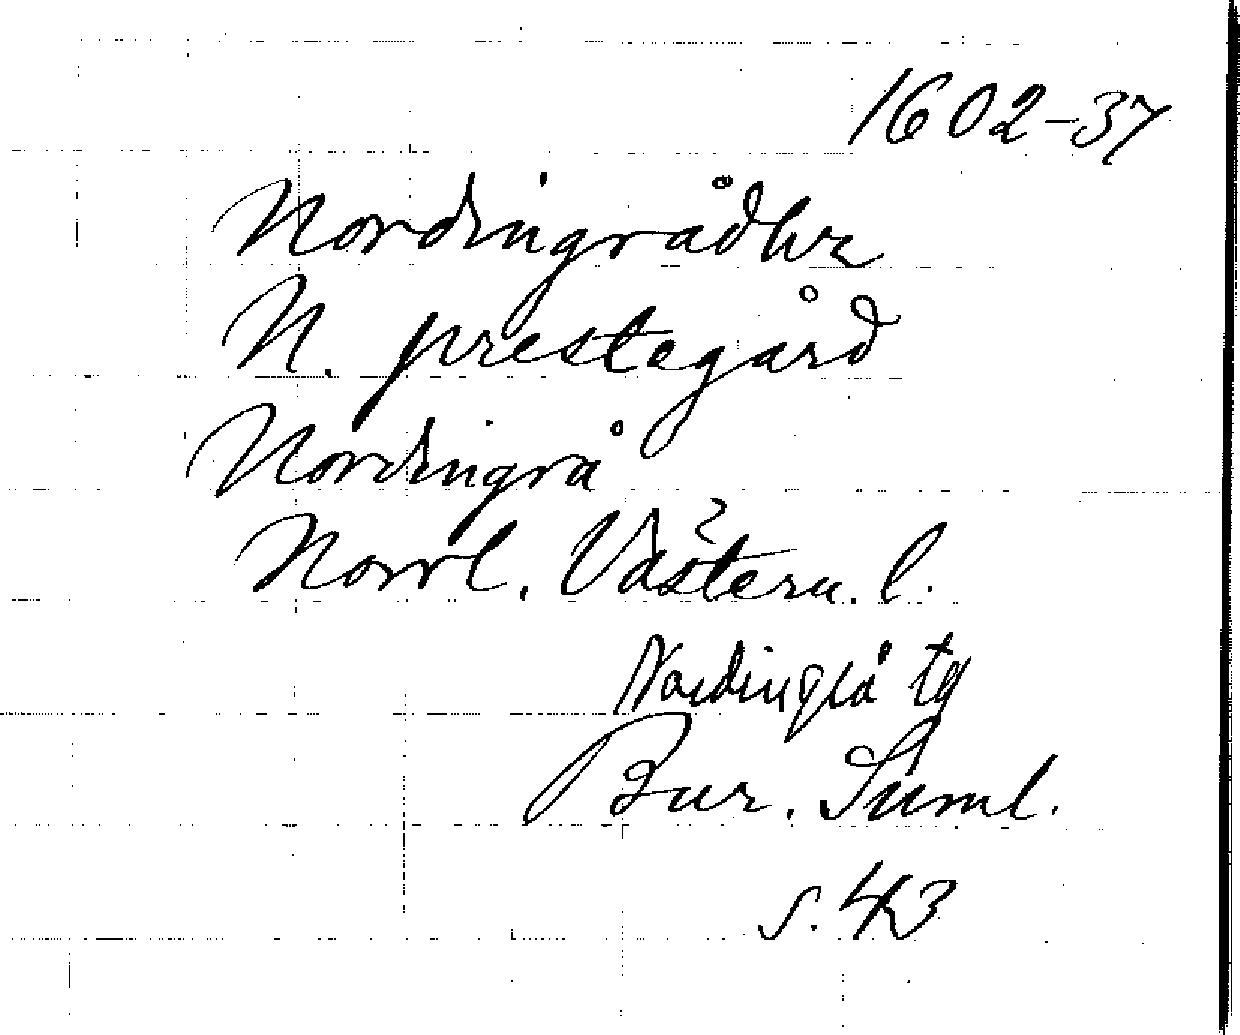 1602-37
Nordingrådhr
N. prestegård
Nordingrå
Norrl. Västern. l.
Nordingrå tg
Bur. Suml.
s. 43